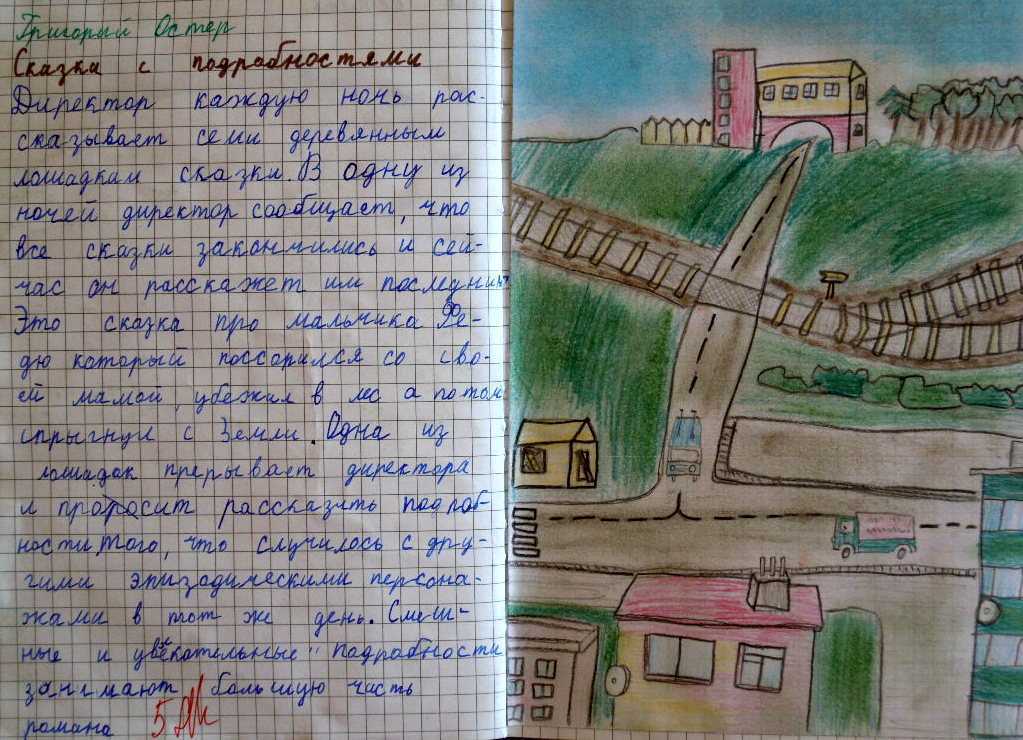 Григорий Остер
Сказки с подробностями
Директор каждую ночь рас-
сказывает семи деревянным
лошадкам сказки. В одну из
ночей директор сообщает, что
все сказки закончились и сей-
час он расскажет им последнию.
Это сказка про мальчика Фе-
дю который поссорился со сво-
ей мамой, убежил в лес а потом
спрыгнул с Земли. Одна из
лошадок прерывает директора
и просит рассказить подроб-
ности того, что случилось с дру-
гими эпизодическими персона-
жами в тот же день. Смеш-
ные и увлекательные "подрабности
занимают большую часть
романа 5